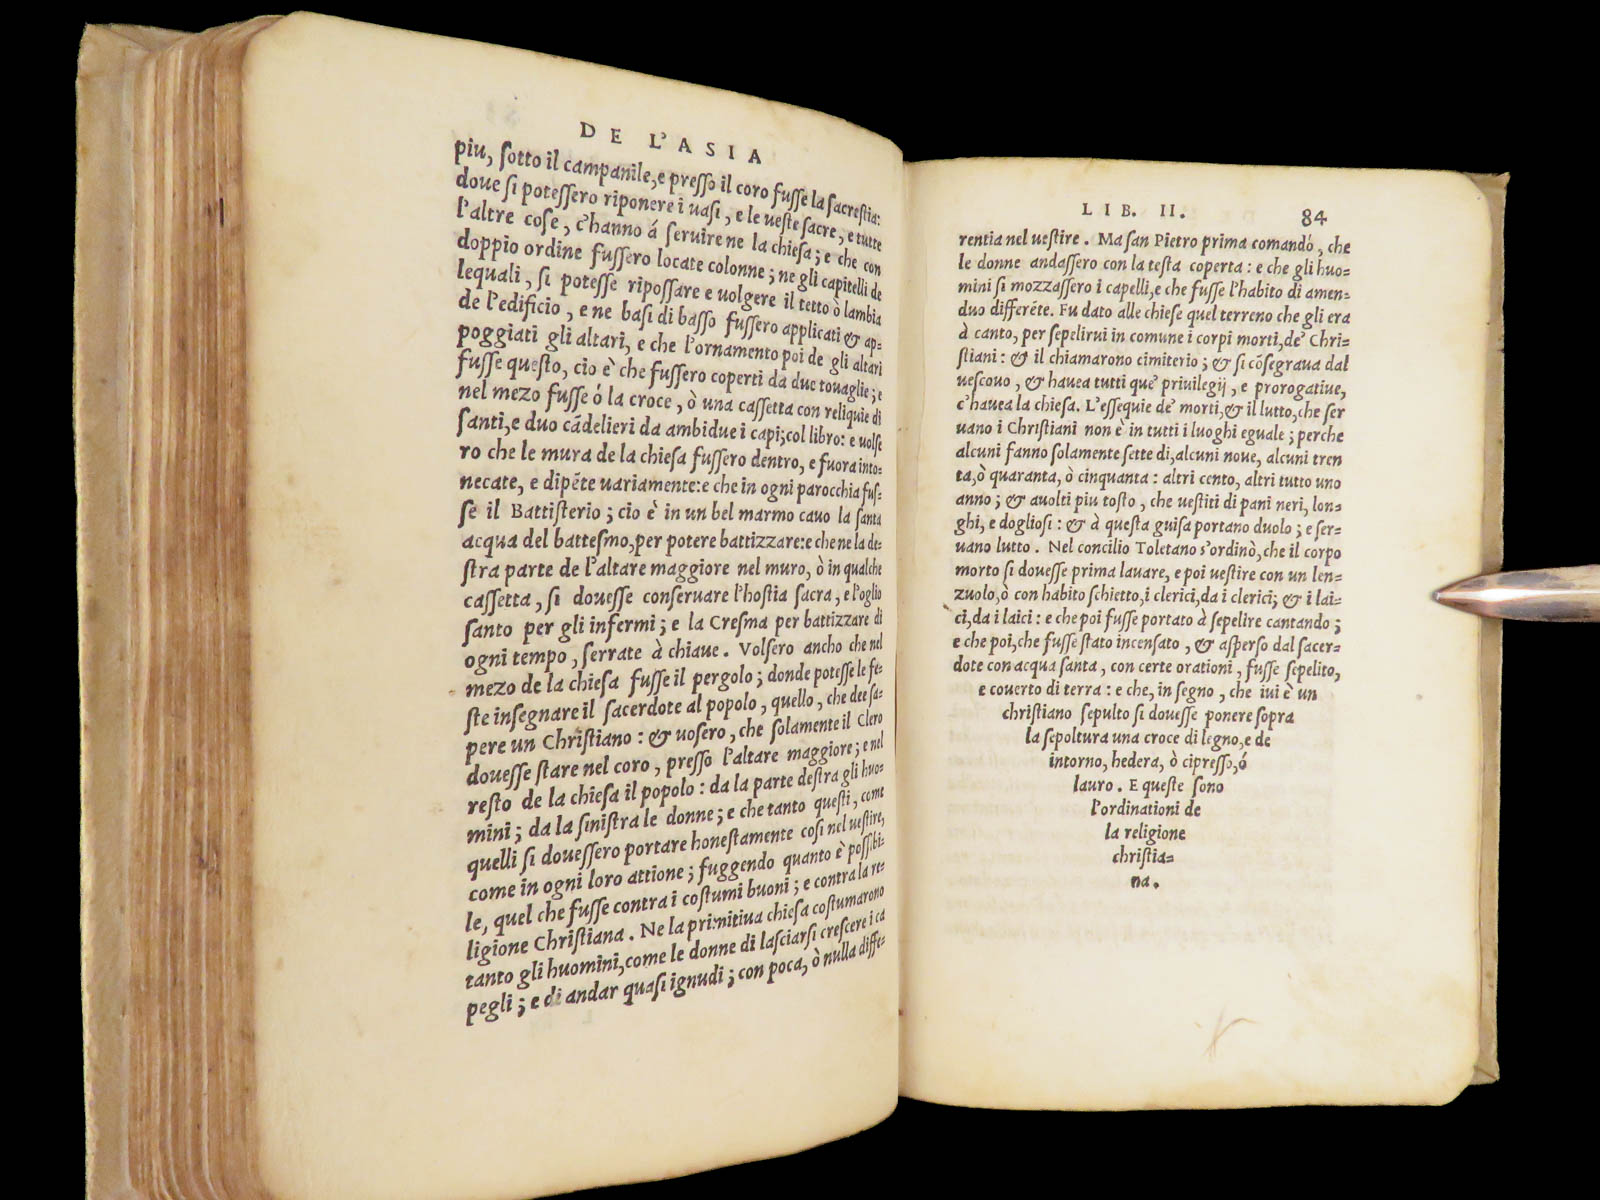 DE L'ASIA
piu, sotto il campanile, e presso il coro fusse la sacrestia:
doue si potessero riponere i uasi, e le ueste sacre, e tutte
l'altre cose, c'hanno á seruire ne la chiesa; e che con
doppio ordine fussero locate colonne; ne gli capitelli de
lequali, si potesse ripossare e uolgere il tetto ò lambia
de l'edificio, e ne basi di basso fussero applicati & ap-
poggiati gli altari, e che l'ornamento poi de gli altari
fusse questo, cio è che fussero coperti da due touaglie; e
nel mezo fusse ó la croce, ò una cassetta con reliquie di
santi, e duo cãdelieri da ambidue i capi; col libro: e uolse
ro che le mura de la chiesa fussero dentro, e fuora into-
necate, e dipẽte uariamente: e che in ogni parocchia fus-
se il Battisterio; cio è in un bel marmo cauo la santa
acqua del battesmo, per potere battizzare: e che ne la de-
stra parte de l'altare maggiore nel muro, ò in qualche
cassetta, si douesse conseruare l'hostia sacra, e l'oglio
santo per gli infermi; e la Cresma per battizzare di
ogni tempo, serrate à chiaue. Volsero ancho che nel
mezo de la chiesa fusse il pergolo; donde potesse le fe-
ste insegnare il sacerdote al popolo, quello, che dee sa-
pere un Christiano: & uosero, che solamente il Clero
douesse stare nel coro, presso l'altare maggiore; e nel
resto de la chiesa il popolo: da la parte destra gli huo-
mini; da la sinistra le donne; e che tanto questi, come
quelli si douessero portare honestamente cosi nel uestire,
come in ogni loro attione; fuggendo quanto è possibi-
le, quel che fusse contra i costumi buoni; e contra la re-
ligione Christiana. Ne la primitiua chiesa costumarono
tanto gli huomini, come le donne di lasciarsi crescere i ca
pegli; e di andar quasi ignudi; con poca, ò nulla diffe-
LIB. II. 84
rentia nel uestire. Ma san Pietro prima comandó, che
le donne andassero con la testa coperta: e che gli huo-
mini si mozzassero i capelli, e che fusse l'habito di amen-
duo differẽte. Fu dato alle chiese quel terreno che gli era
à canto, per sepelirui in comune i corpi morti, de' Chri-
stiani: & il chiamarono cimiterio; & si cõsegraua dal
uescouo, & hauea tutti que' priuilegij, e prorogatiue,
c'hauea la chiesa. L'essequie de' morti, & il lutto, che ser
uano i Christiani non è in tutti i luoghi eguale; perche
alcuni fanno solamente sette di, alcuni noue, alcuni tren
ta, ò quaranta, ò cinquanta: altri cento, altri tutto uno
anno; & auolti piu tosto, che uestiti di pani neri, lon-
ghi, e dogliosi: & à questa guisa portano duolo; e ser-
uano lutto. Nel concilio Toletano s'ordinò, che il corpo
morto si douesse prima lauare, e poi uestire con un len-
zuolo, ò con habito schietto, i clerici, da i clerici; & i lai-
ci, da i laici: e che poi fusse portato à sepelire cantando;
e che poi, che fusse stato incensato, & asperso dal sacer-
dote con acqua santa, con certe orationi, fusse sepelito,
e couerto di terra: e che, in segno, che iui è un
christiano sepulto si douesse ponere sopra
la sepoltura una croce di legno, e de
intorno, hedera, ò cipresso, ó
lauro. E queste sono
l'ordinationi de
la religione
christia-
na.